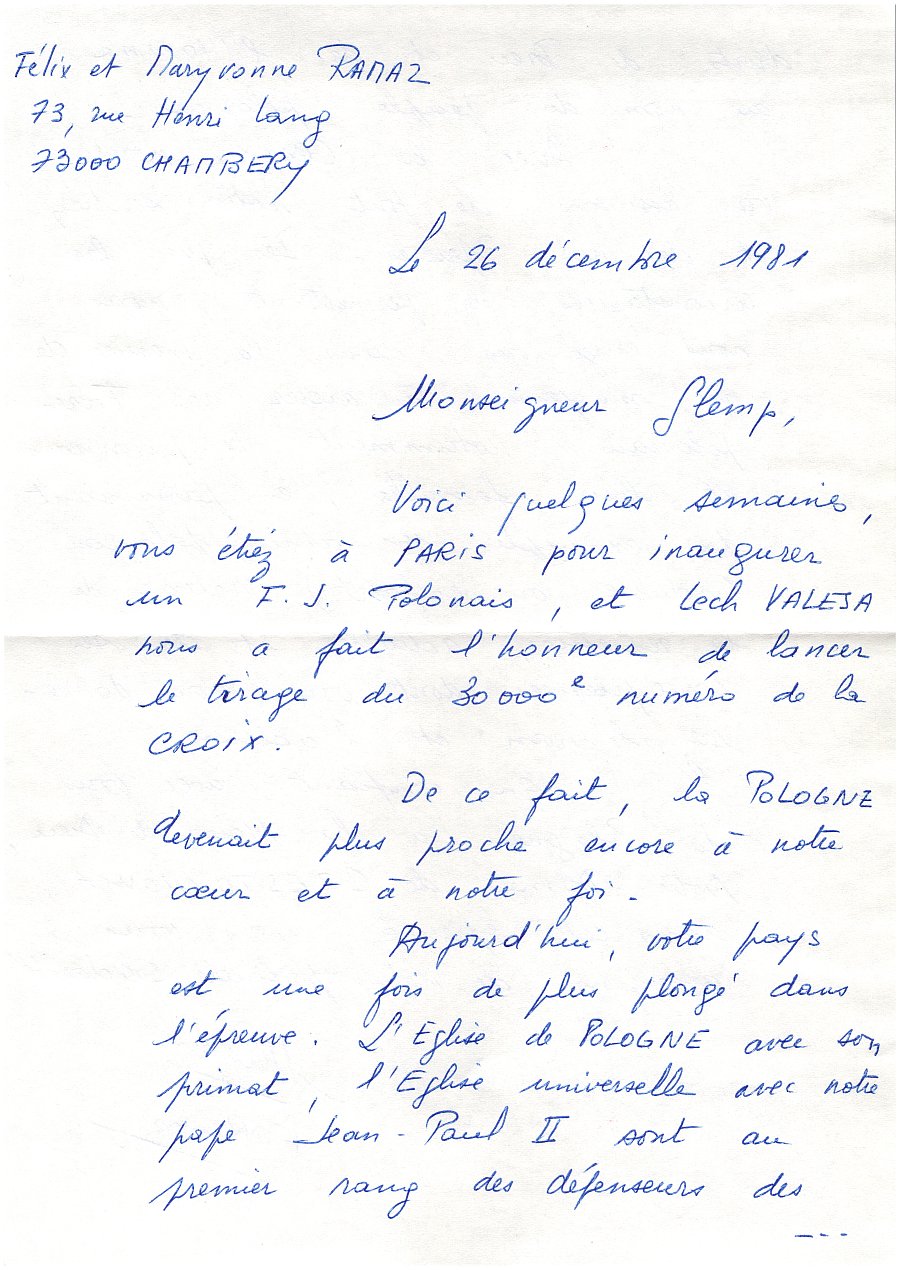 Félix et Maryvonne RAMAZ
73, rue Henri Lang
73000 CHAMBERY
Le 26 décembre 1981
Monseigneur Glemp,
Voici quelques semaines,
vous étiez à PARIS pour inaugurer
un F. J. Polonais, et Lech VALESA
nous a fait l'honneur de lancer
le tirage du 30000e numéro de la
CROIX.
De ce fait, la POLOGNE
devenait plus proche encore à notre
cœur et à notre foi.
Aujourd'hui, votre pays
est une fois de plus plongé dans
l'épreuve. L'Eglise de POLOGNE avec son
primat, l'Eglise universelle avec notre
pape Jean-Paul II sont au
premier rang des défenseurs des
---